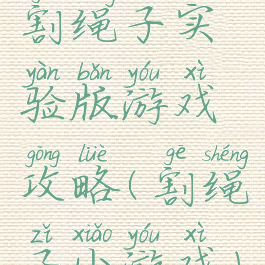 割绳子实
yàn bǎn yóu xì
验版游戏
gōng lüè gē shéng
攻略(割绳
zǐ xiǎo yóu xì
子小游戏)